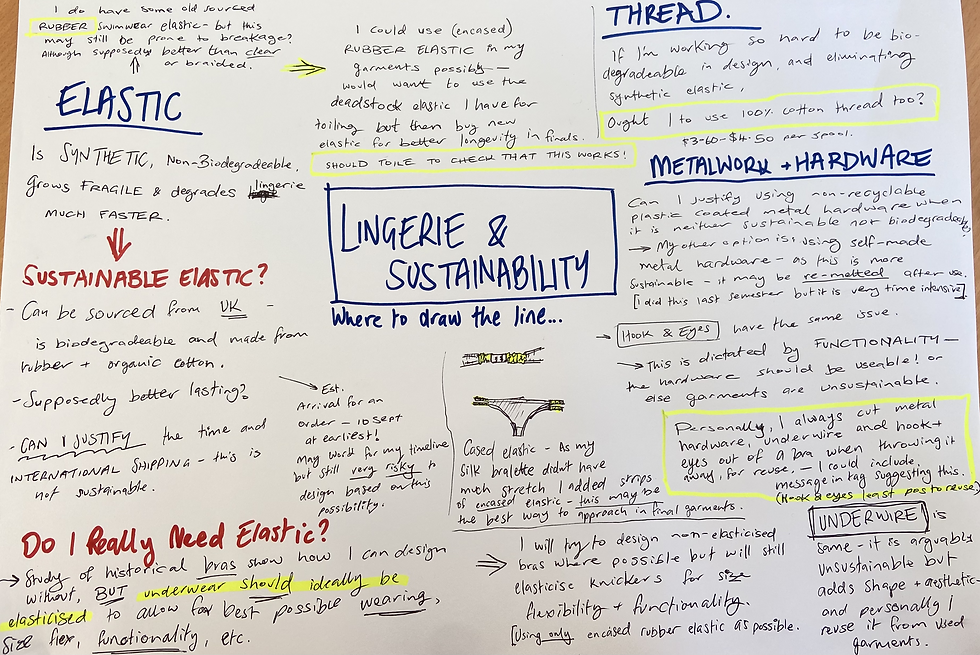 I do have some old sourced
RUBBER swimwear elastic - but this
may still be prone to breakage?
Although supposedly better than clear
or braided.
ELASTIC
Is SYNTHETIC, Non-Biodegradeable,
grows FRAGILE & degrades lingerie
MUCH FASTER.
SUSTAINABLE ELASTIC?
- Can be sourced from UK -
is biodegradeable and made from
rubber + organic cotton.
- Supposedly better lasting?
- CAN I JUSTIFY the time and
INTERNATIONAL SHIPPING - this is
not sustainable.
Est.
Arrival for an
order - 10 Sept
at earliest!
May work for my timeline
but still very risky to
design based on this
possibility.
Do I Really Need Elastic?
Study of historical bras show how I can design
without, BUT underwear should ideally be
elasticised to allow for best possible wearing,
size flex, functionality, etc.
I could use (encased)
RUBBER ELASTIC in my
garments possibly -
would want to use the
deadstock elastic I have for
toiling but then buy new
elastic for better longevity in finals.
SHOULD TOILE TO CHECK THAT THIS WORKS!
LINGERIE &
SUSTAINABILITY
Where to draw the line...
Cased elastic - As my
silk bralette didn't have
much stretch I added strips
of encased elastic - this may be
the best way to approach in final garments.
I will try to design non-elasticised
bras where possible but will still
elasticise knickers for size
flexibility + functionality.
[Using only encased rubber elastic as possible.
THREAD.
If I'm working so hard to be bio-
degradeable in design, and eliminating
synthetic elastic,
Ought I to use 100% cotton thread too?
$3.60-$4.50 per spool.
METALWORK + HARDWARE
Can I justify using non-recyclable
plastic coated metal hardware when
it is neither sustainable not biodegradeable,
My other option is using self-made
metal hardware - as this is more
sustainable - it may be re-melted after use.
[I did this last semester but it is very time intensive].
Hook & Eyes have the same issue.
This is dictated by FUNCTIONALITY -
the hardware should be useable! or
else garments are unsustainable.
Personally, I always cut metal
hardware, underwire and hook +
eyes out of a bra when throwing it
away, for reuse. - I could include
message in tag suggesting this.
(Hook & eyes least pos to reuse)
UNDERWIRE is
same - it is arguably
unsustainable but
adds shape + aesthetic
and personally I
reuse it from used
garments.